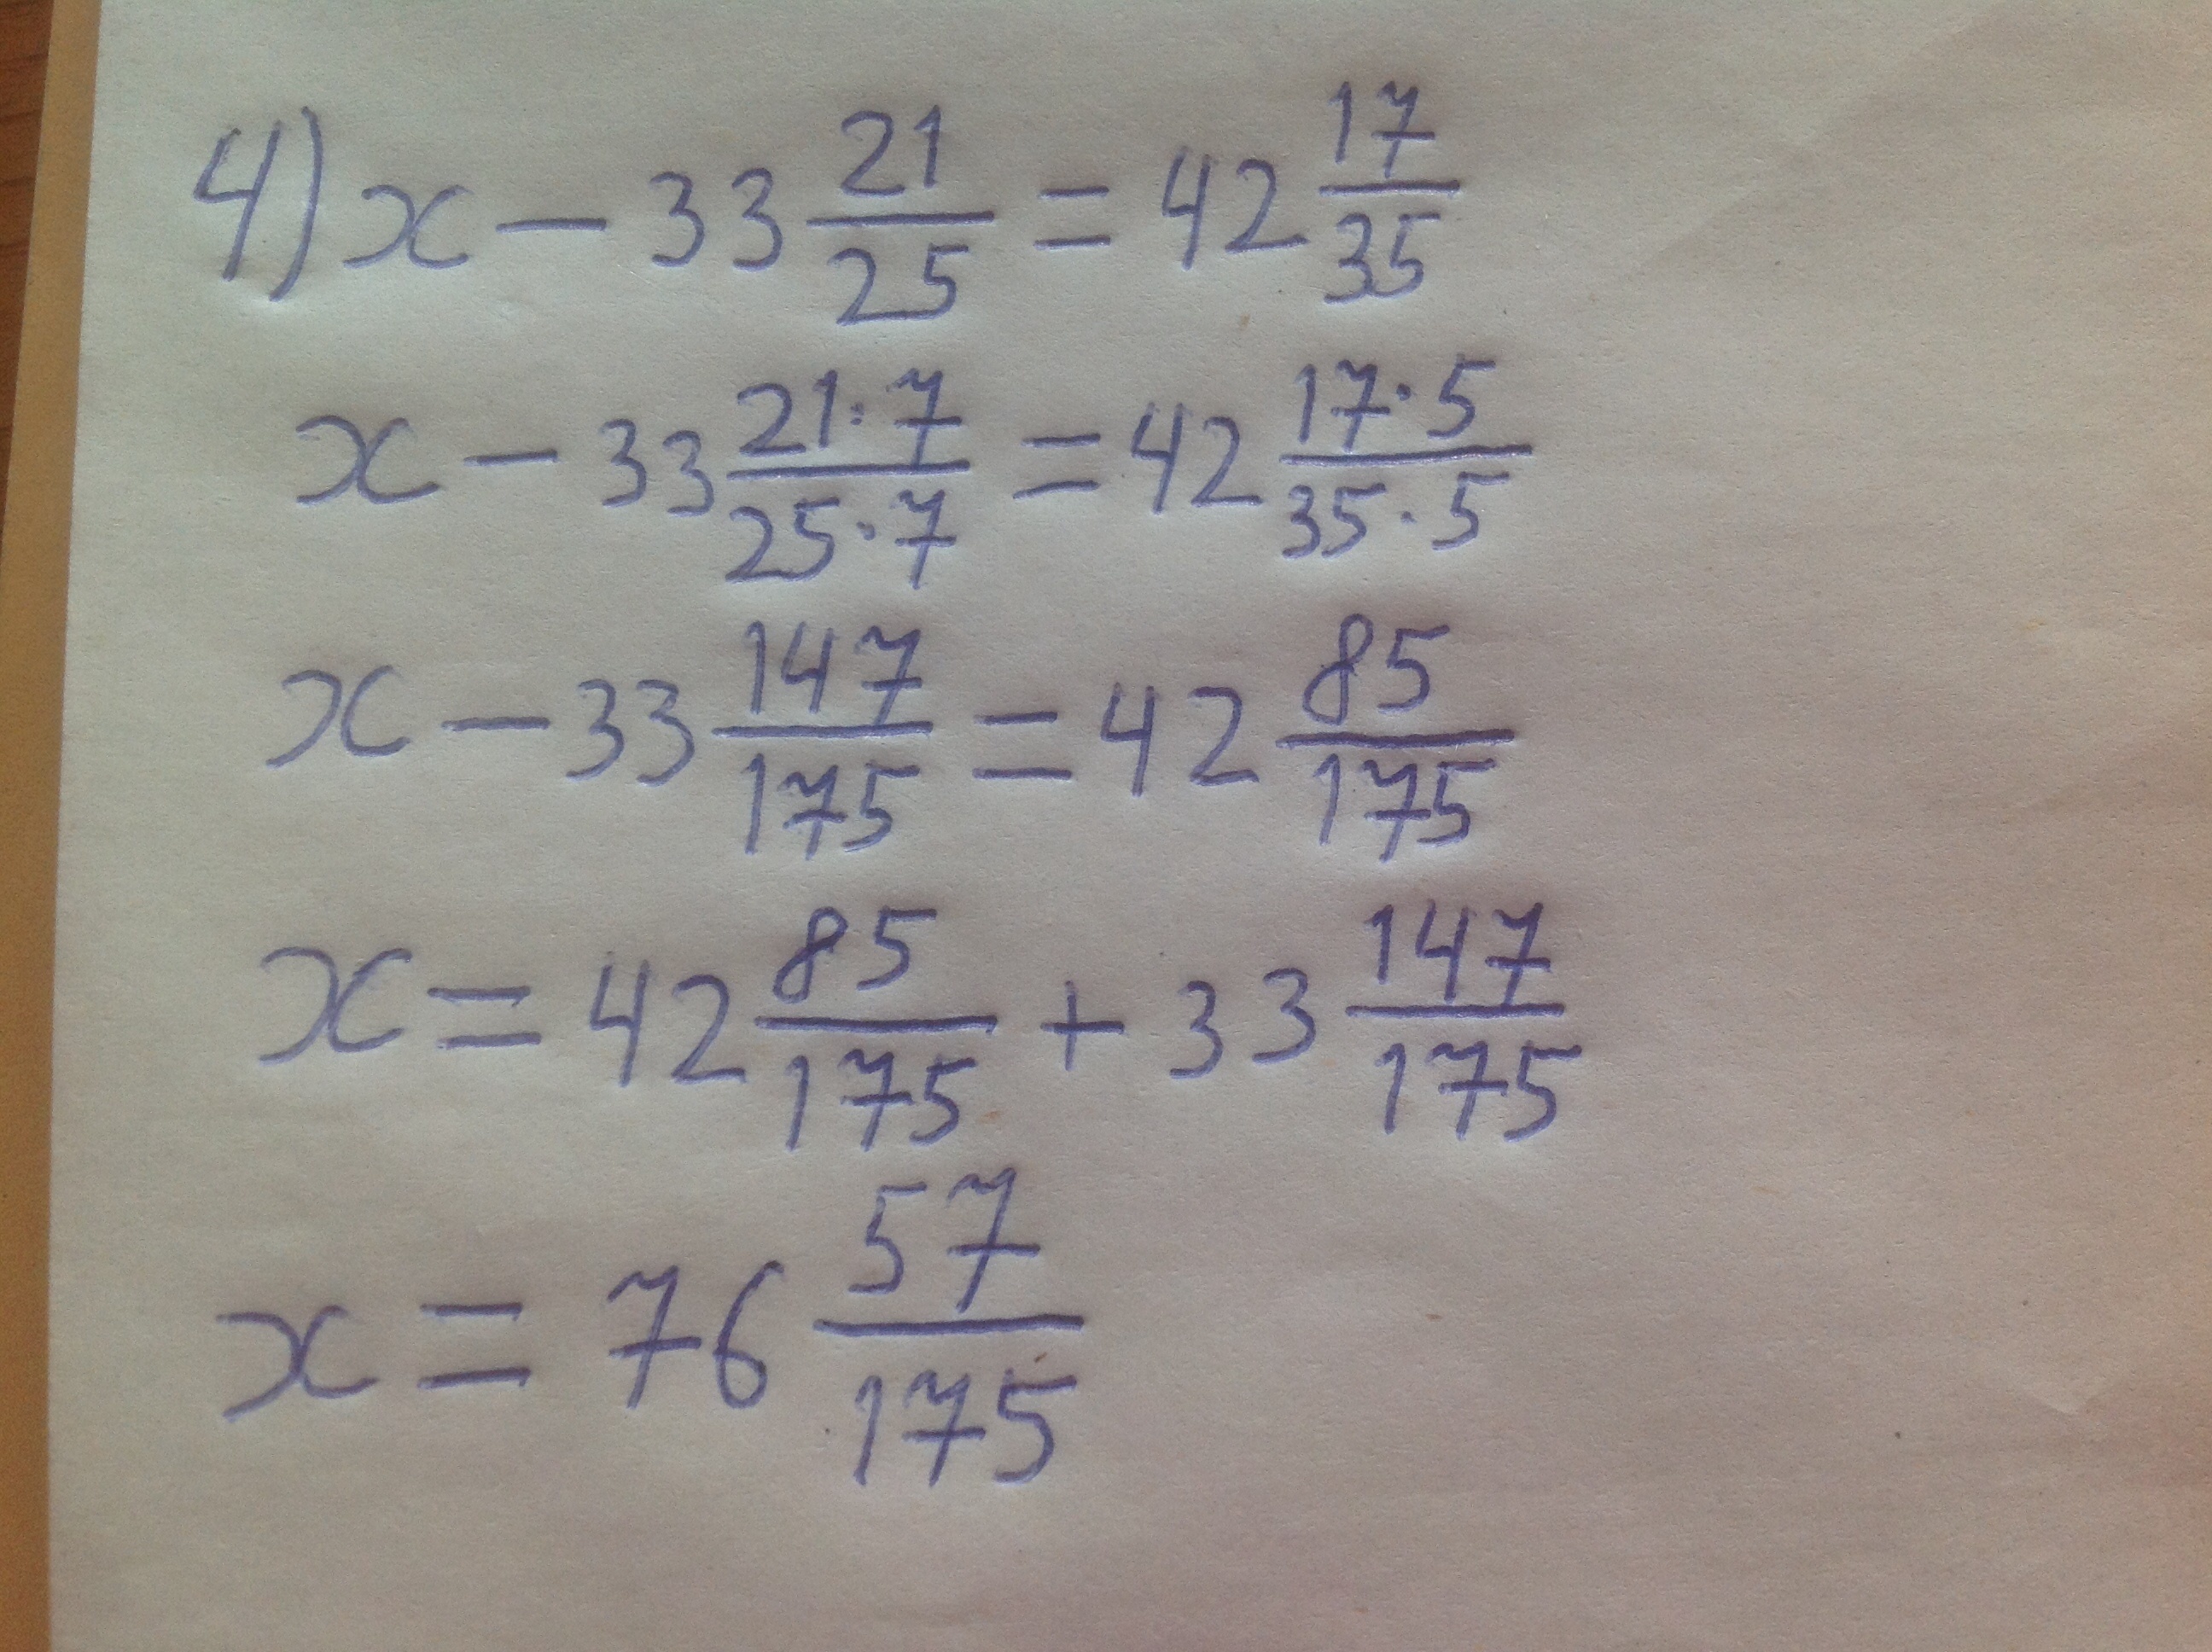 4) x - 33 21/25 = 42 17/35
x - 33 21·7/25·7 = 42 17·5/35·5
x - 33 147/175 = 42 85/175
x = 42 85/175 + 33 147/175
x = 76 57/175